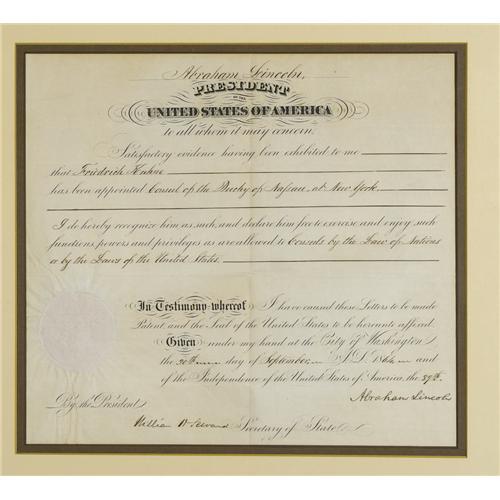 Abraham Lincoln,
PRESIDENT
OF THE
UNITED STATES OF AMERICA
to all whom it may concern.
Satisfactory evidence having been exhibited to me
that Friedrich Kuhne
has been appointed Consul of the Duchy of Nassau, at New York.
I do hereby recognize him as such, and declare him free to exercise and enjoy such
functions, powers and privileges as are allowed to Consuls by the Law of Nations
or by the Laws of the United States.
In Testimony whereof I have caused these Letters to be made
Patent, and the Seal of the United States to be hereunto affixed.
Given under my hand at the City of Washington
the day of September A.D. 186 and
of the Independence of the United States of America, the 89th.
Abraham Lincoln
By the President
William H Seward Secretary of State